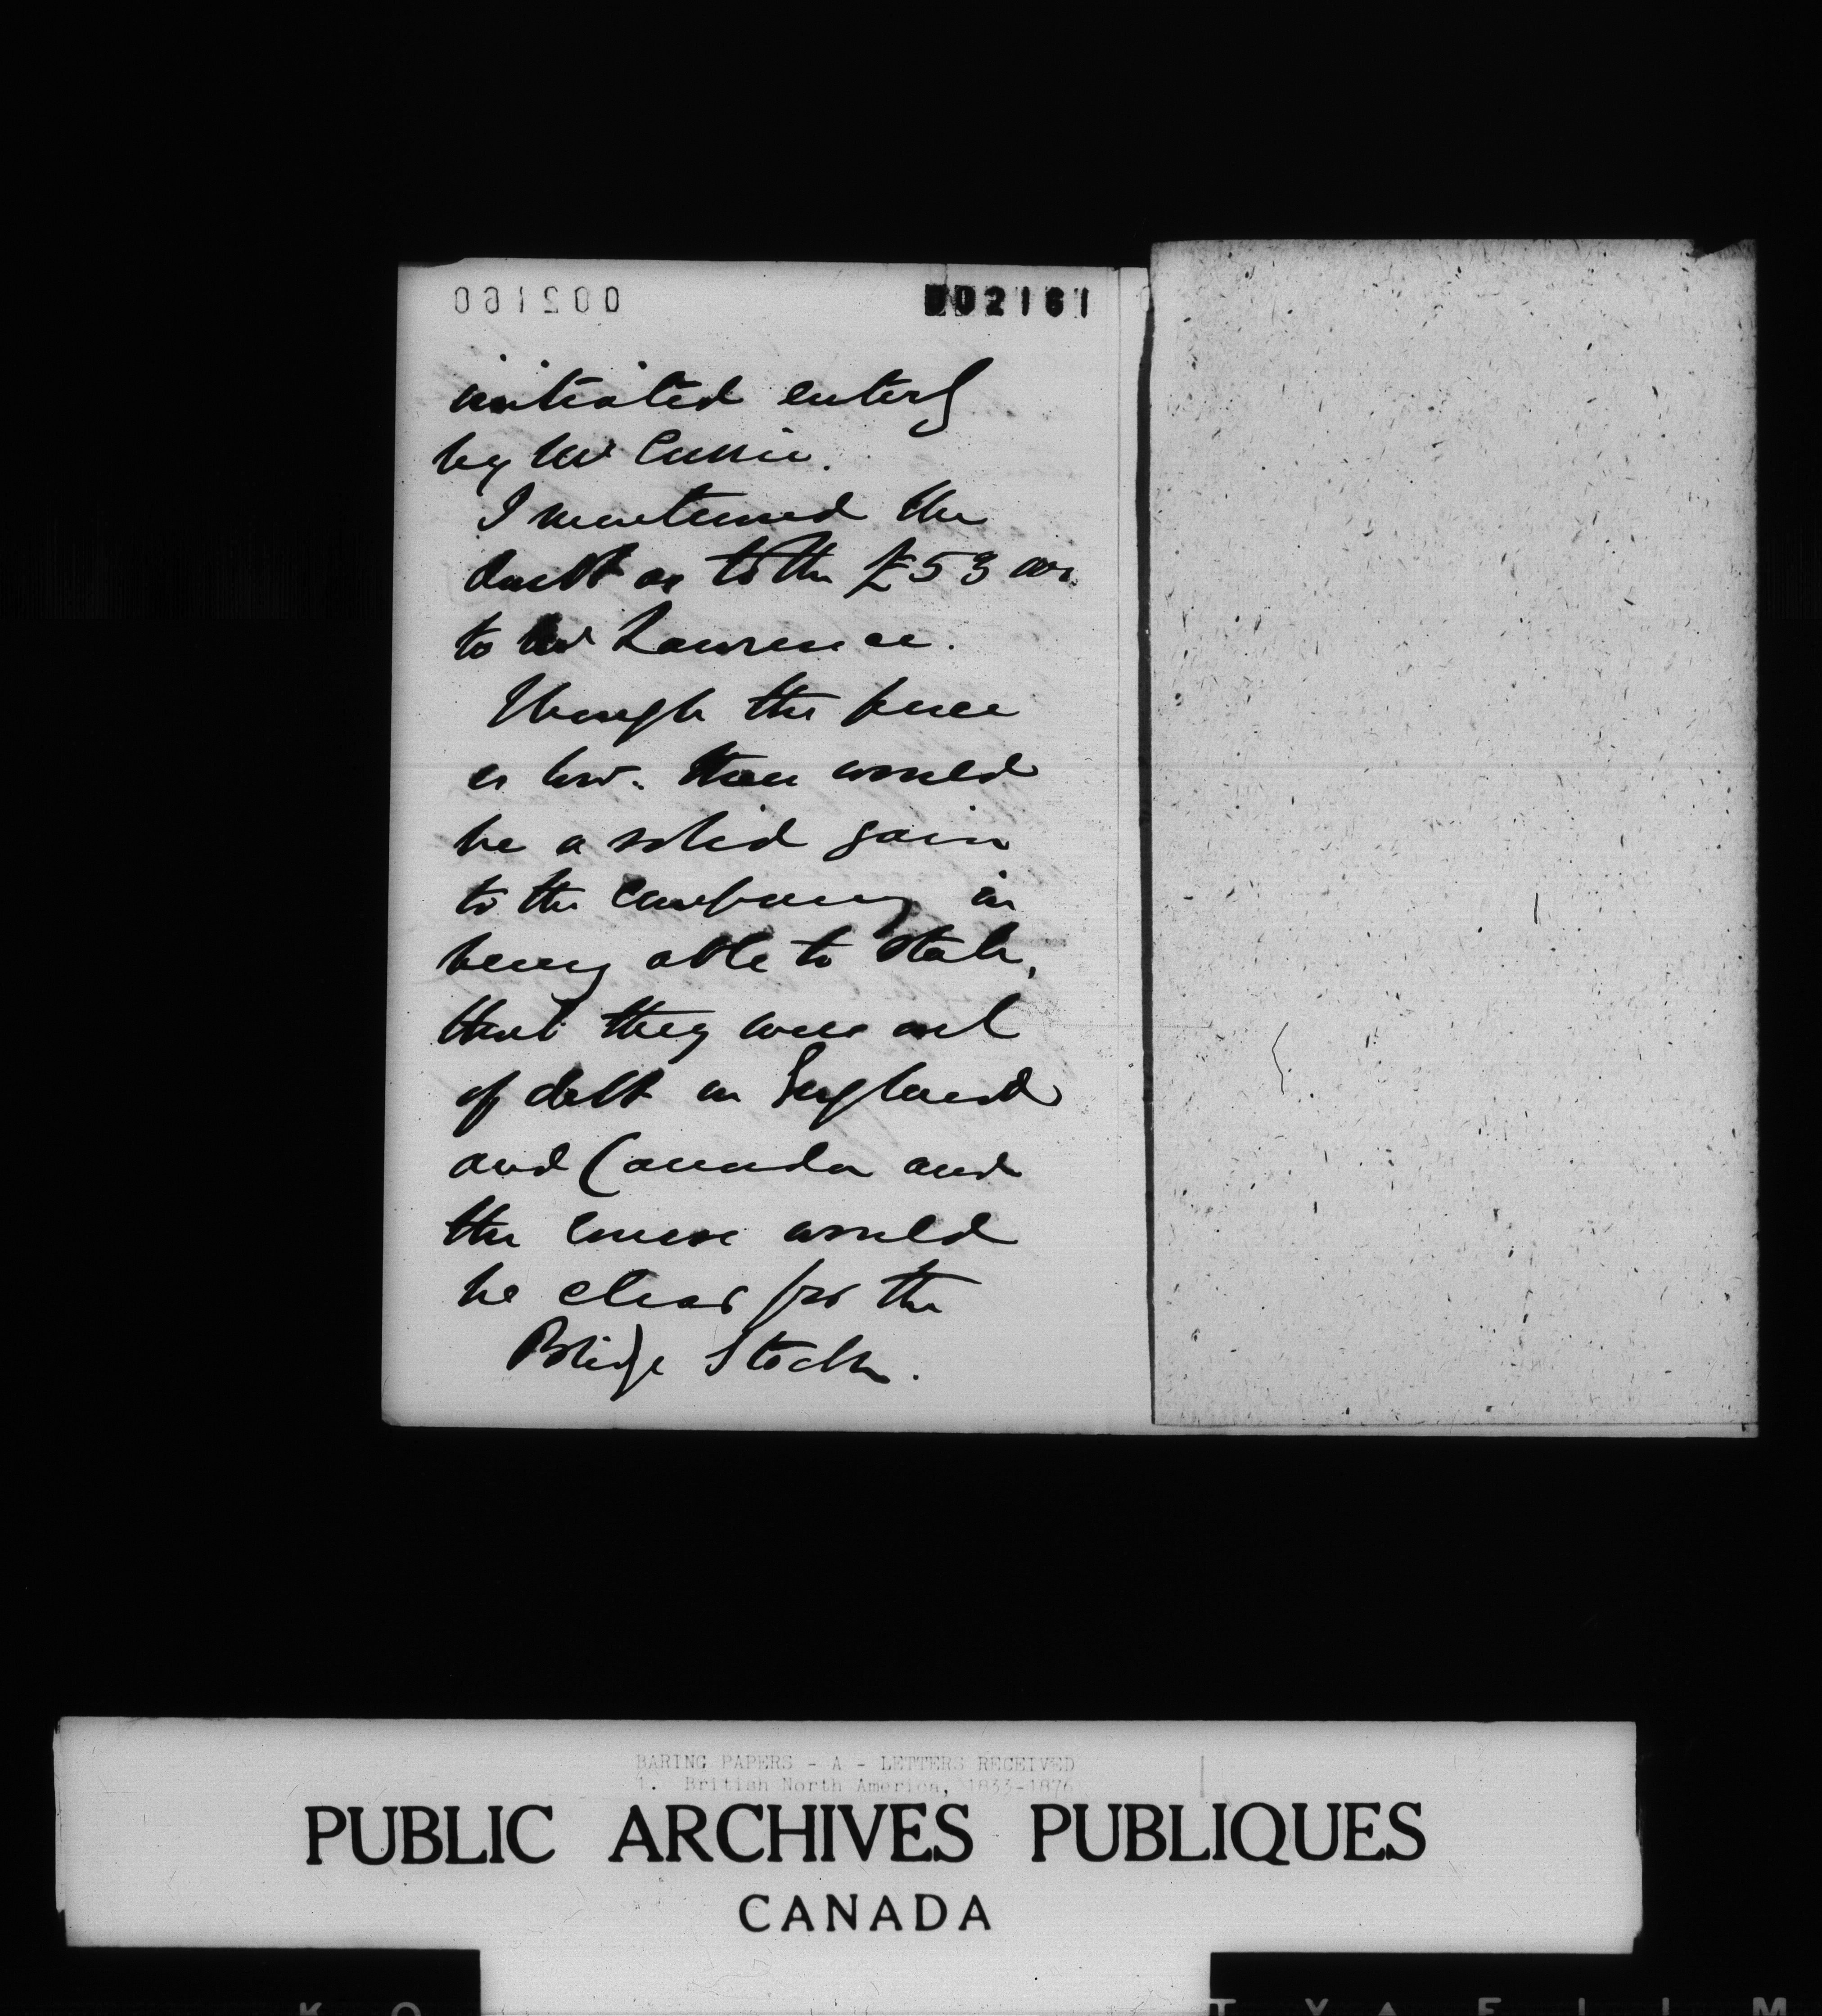 002160
002161
initiated entirely
by Mr
I mentioned the
doubt as to the £53
to Mr Lawrence.
Though the price
is low. there would
be a solid gain
to the Company in
being able to state,
that they were out
of debt in England
and Canada and
the course would
be clear for the
Bridge Stock.
BARING PAPERS - A - LETTERS RECEIVED
1. British North America, 1833-1876
PUBLIC ARCHIVES PUBLIQUES
CANADA